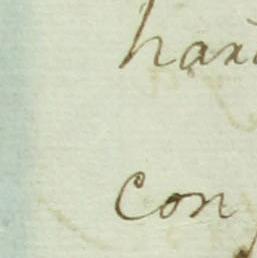 hax
con